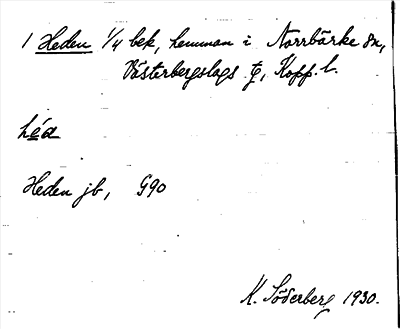 1 Heden 1/4 bek, hemman i Norrbärke sn,
Västerbergslags tg, Kopp. l.
héd
Heden jb, G90
K. Söderberg 1930.